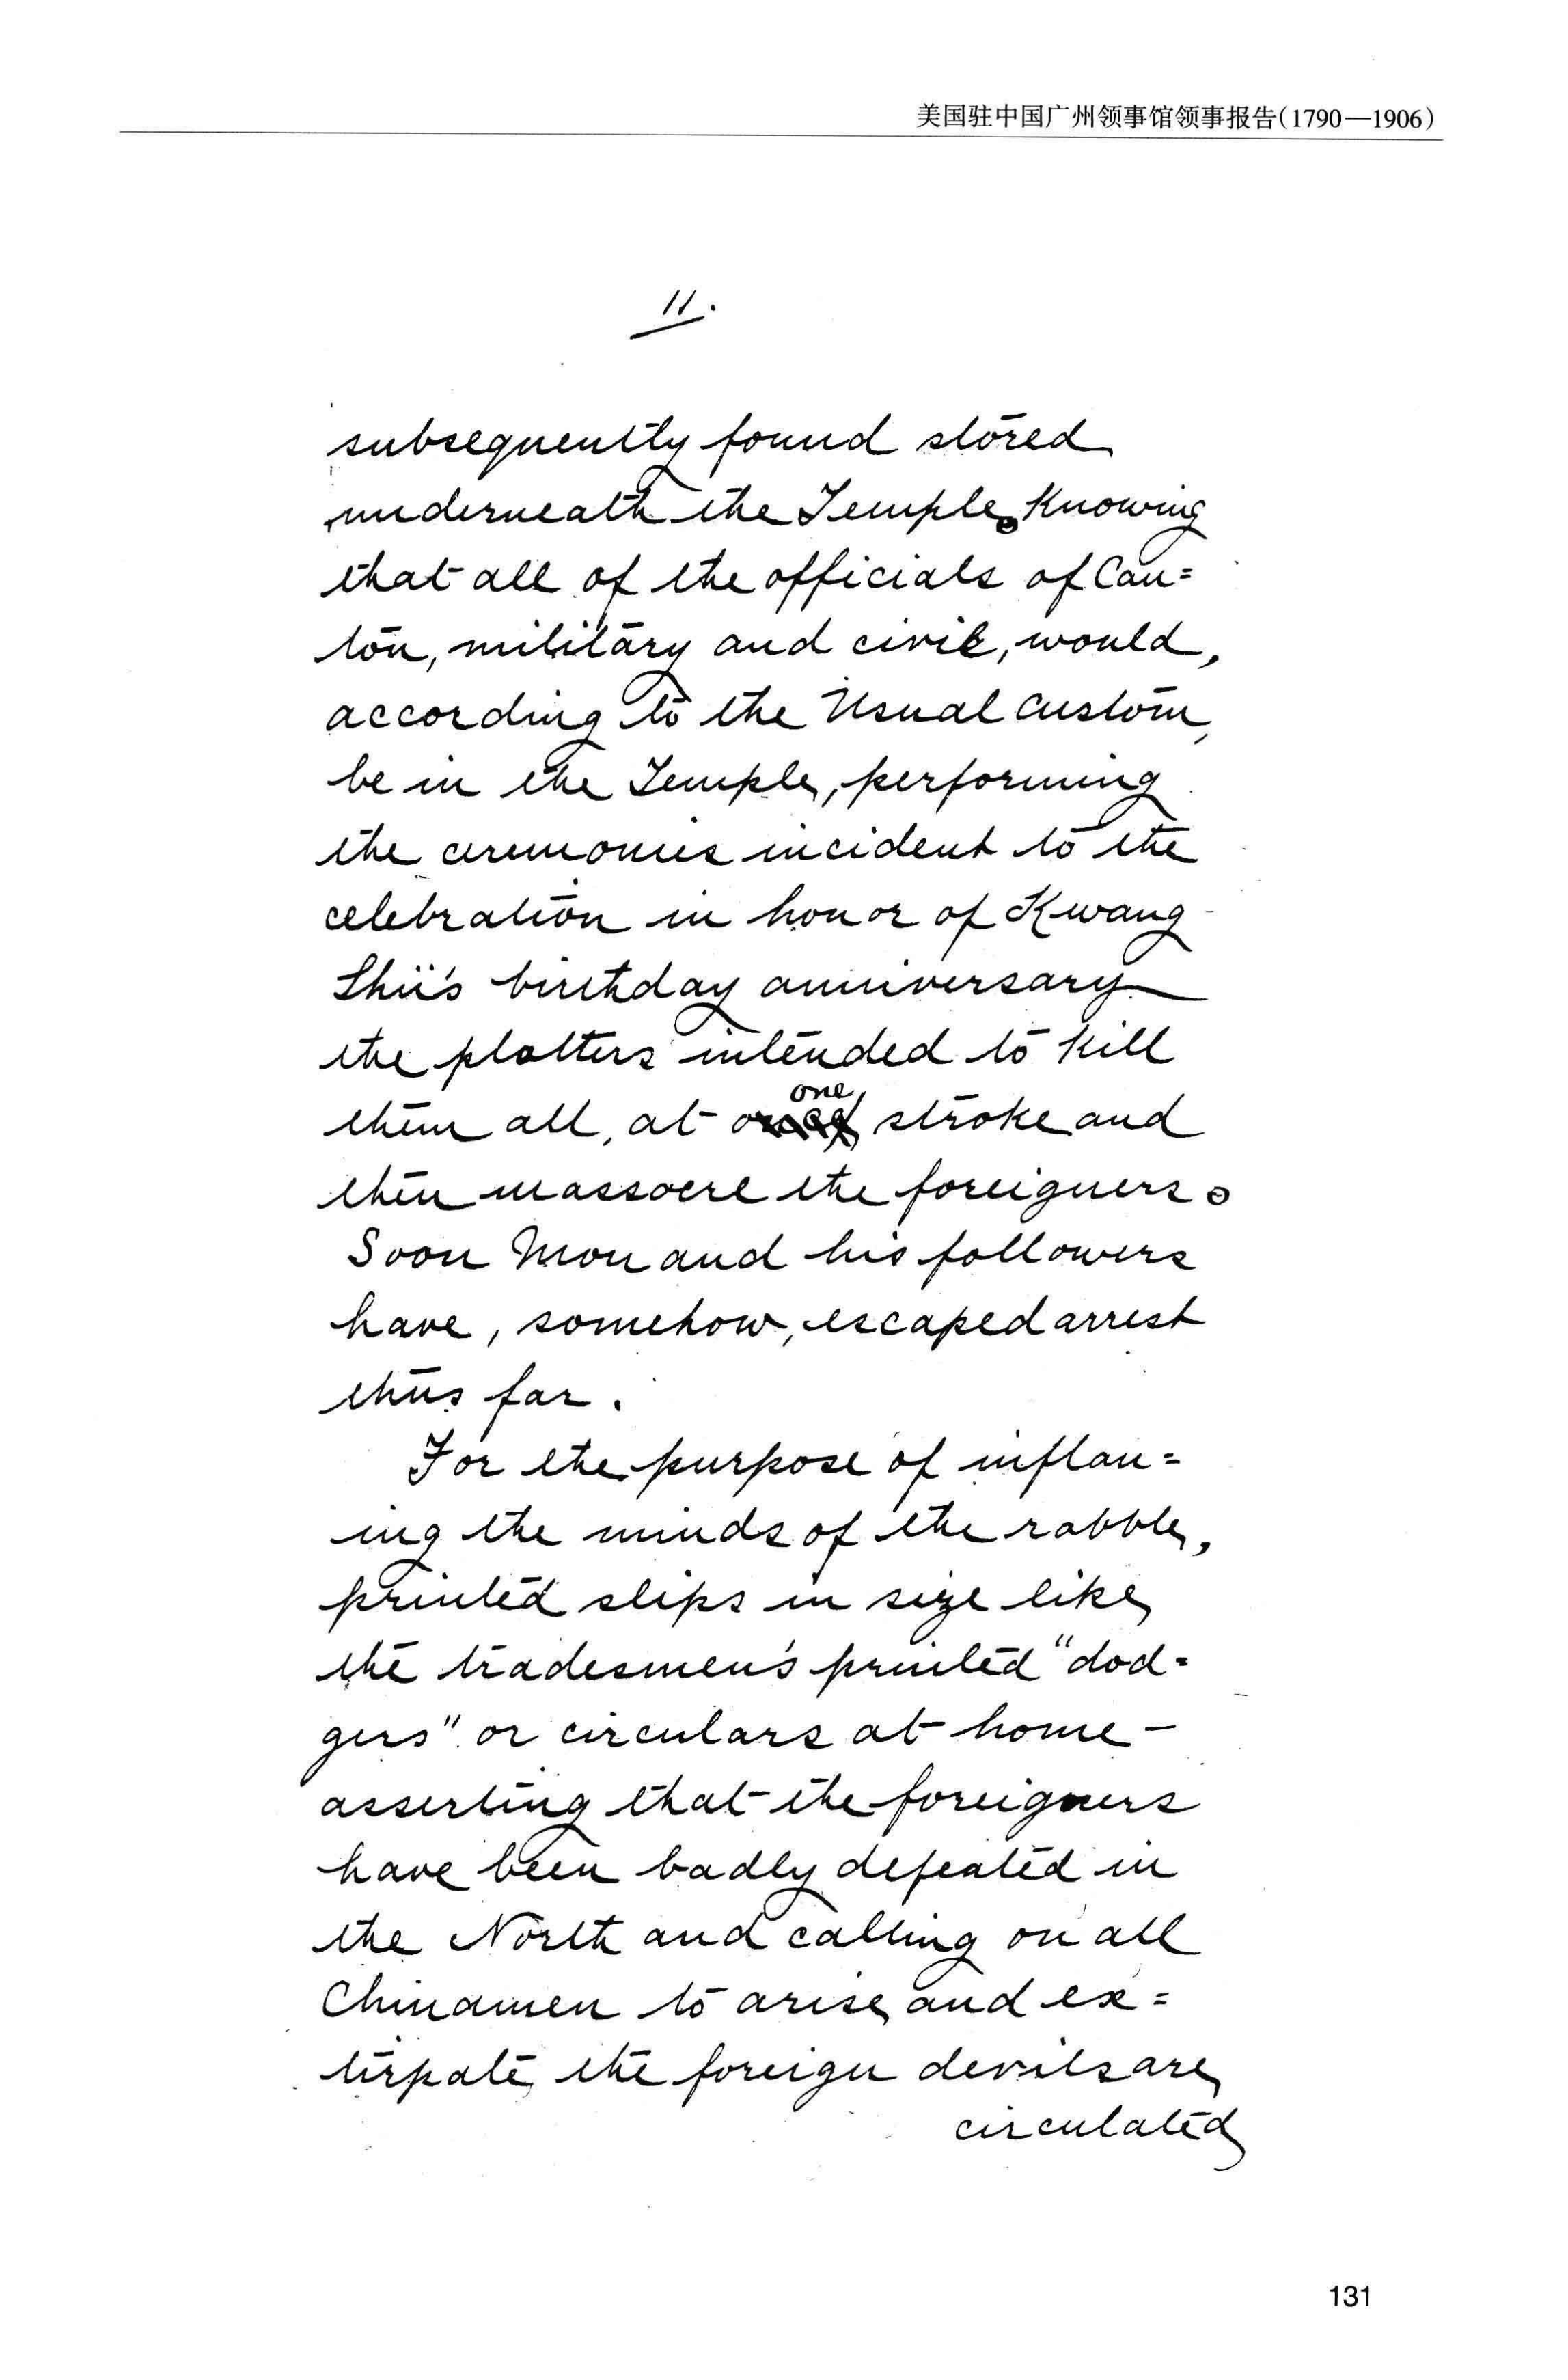 美国驻中国广州领事馆领事报告(1790—1906)
11.
subsequently found stored
underneath the Temple. Knowing
that all of the officials of Can=
ton, military and civil, would,
according to the Usual custom,
be in the Temple, performing
the ceremonies incident to the
celebration in honor of Kwang-
Shii's birthday anniversary
the plotters intended to kill
one
them all, at stroke and
then massacre the foreigners.
Soon Mon and his followers
have, somehow, escaped arrest
thus far.
For the purpose of inflam=
ing the minds of the rabble,
printed slips in size like
the tradesmen's printed "dod=
gers" or circulars at home —
asserting that the foreigners
have been badly defeated in
the North and calling on all
Chinamen to arise and ex=
tirpate the foreign devils are
circulated
131